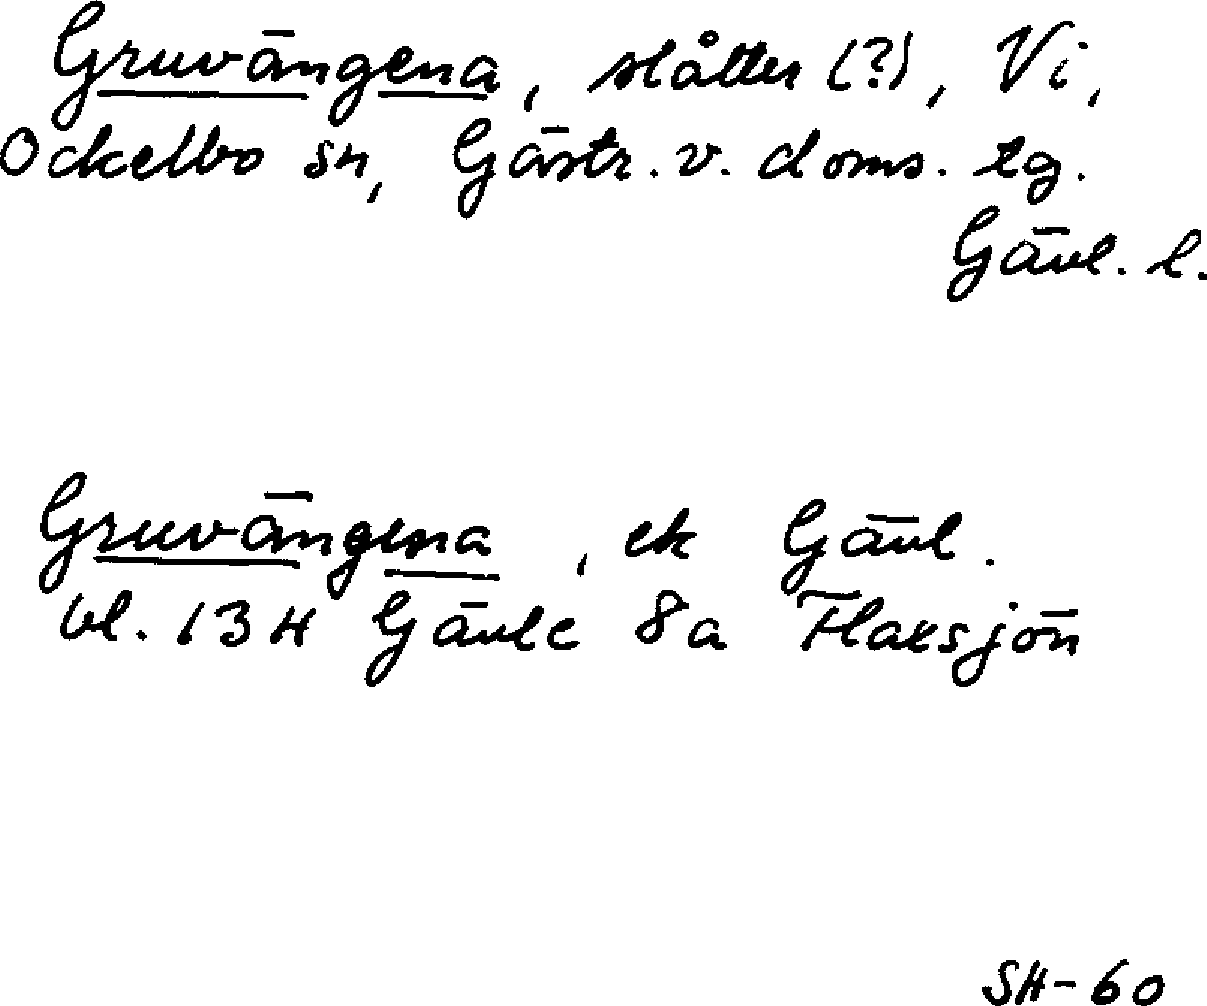 Gruvängena, slåtter (?), Vi,
Ockelbo sn, Gästr. v. doms. tg.
Gävl. l.
Gruvängena, ek Gävl.
bl. 13H Gävle 8a Flaxsjön
SH-60